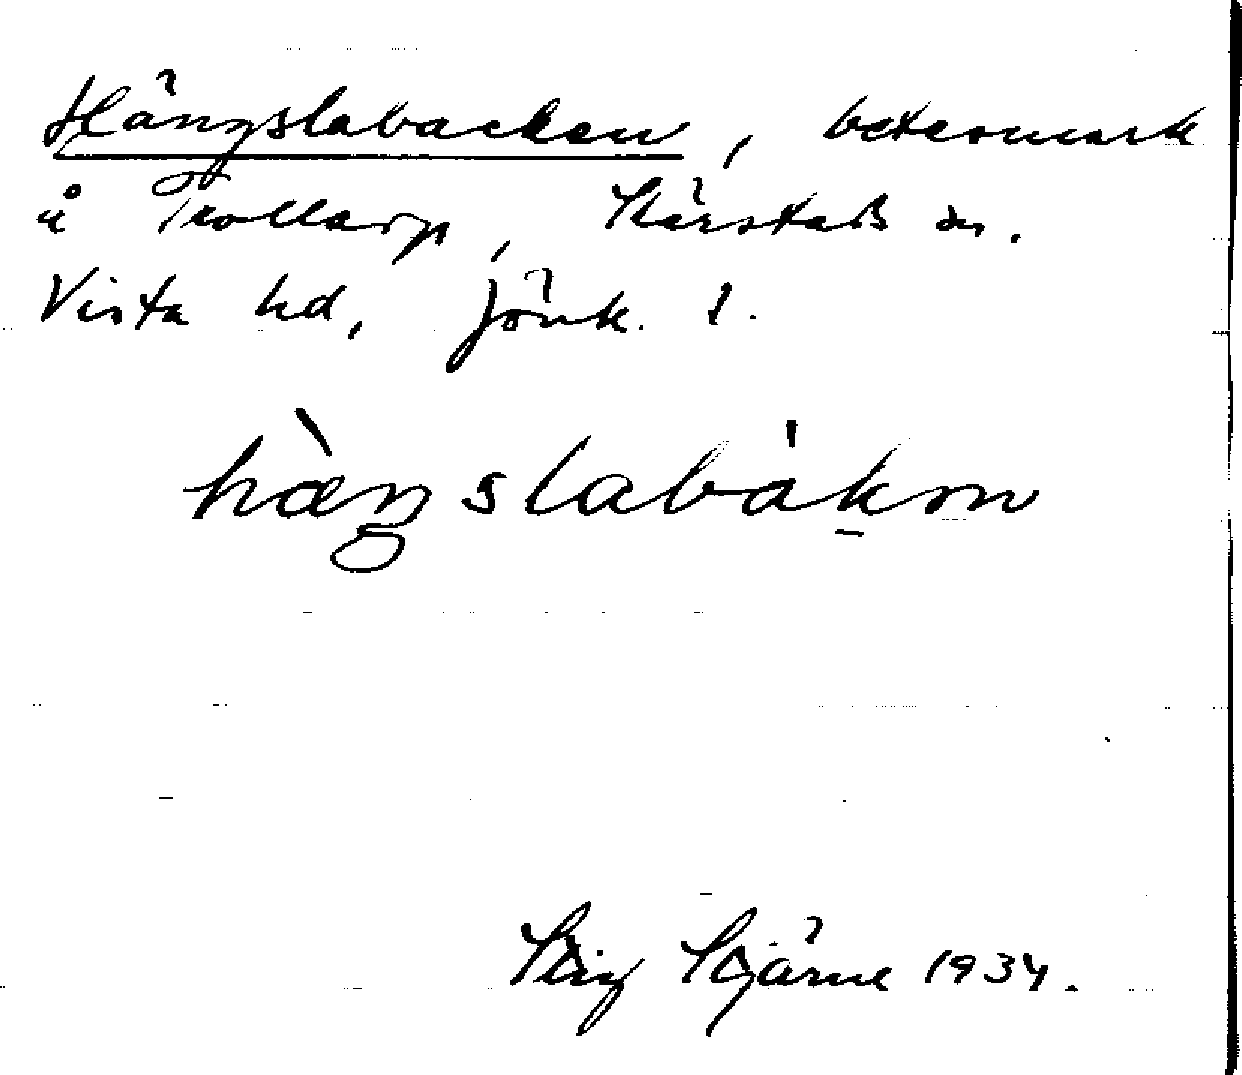 Hängslabacken, betesmark
å Trollarp, Skärstads sn.
Vista hd, Jönk. l.
hæŋslabakən
Stig Stjärne 1934.